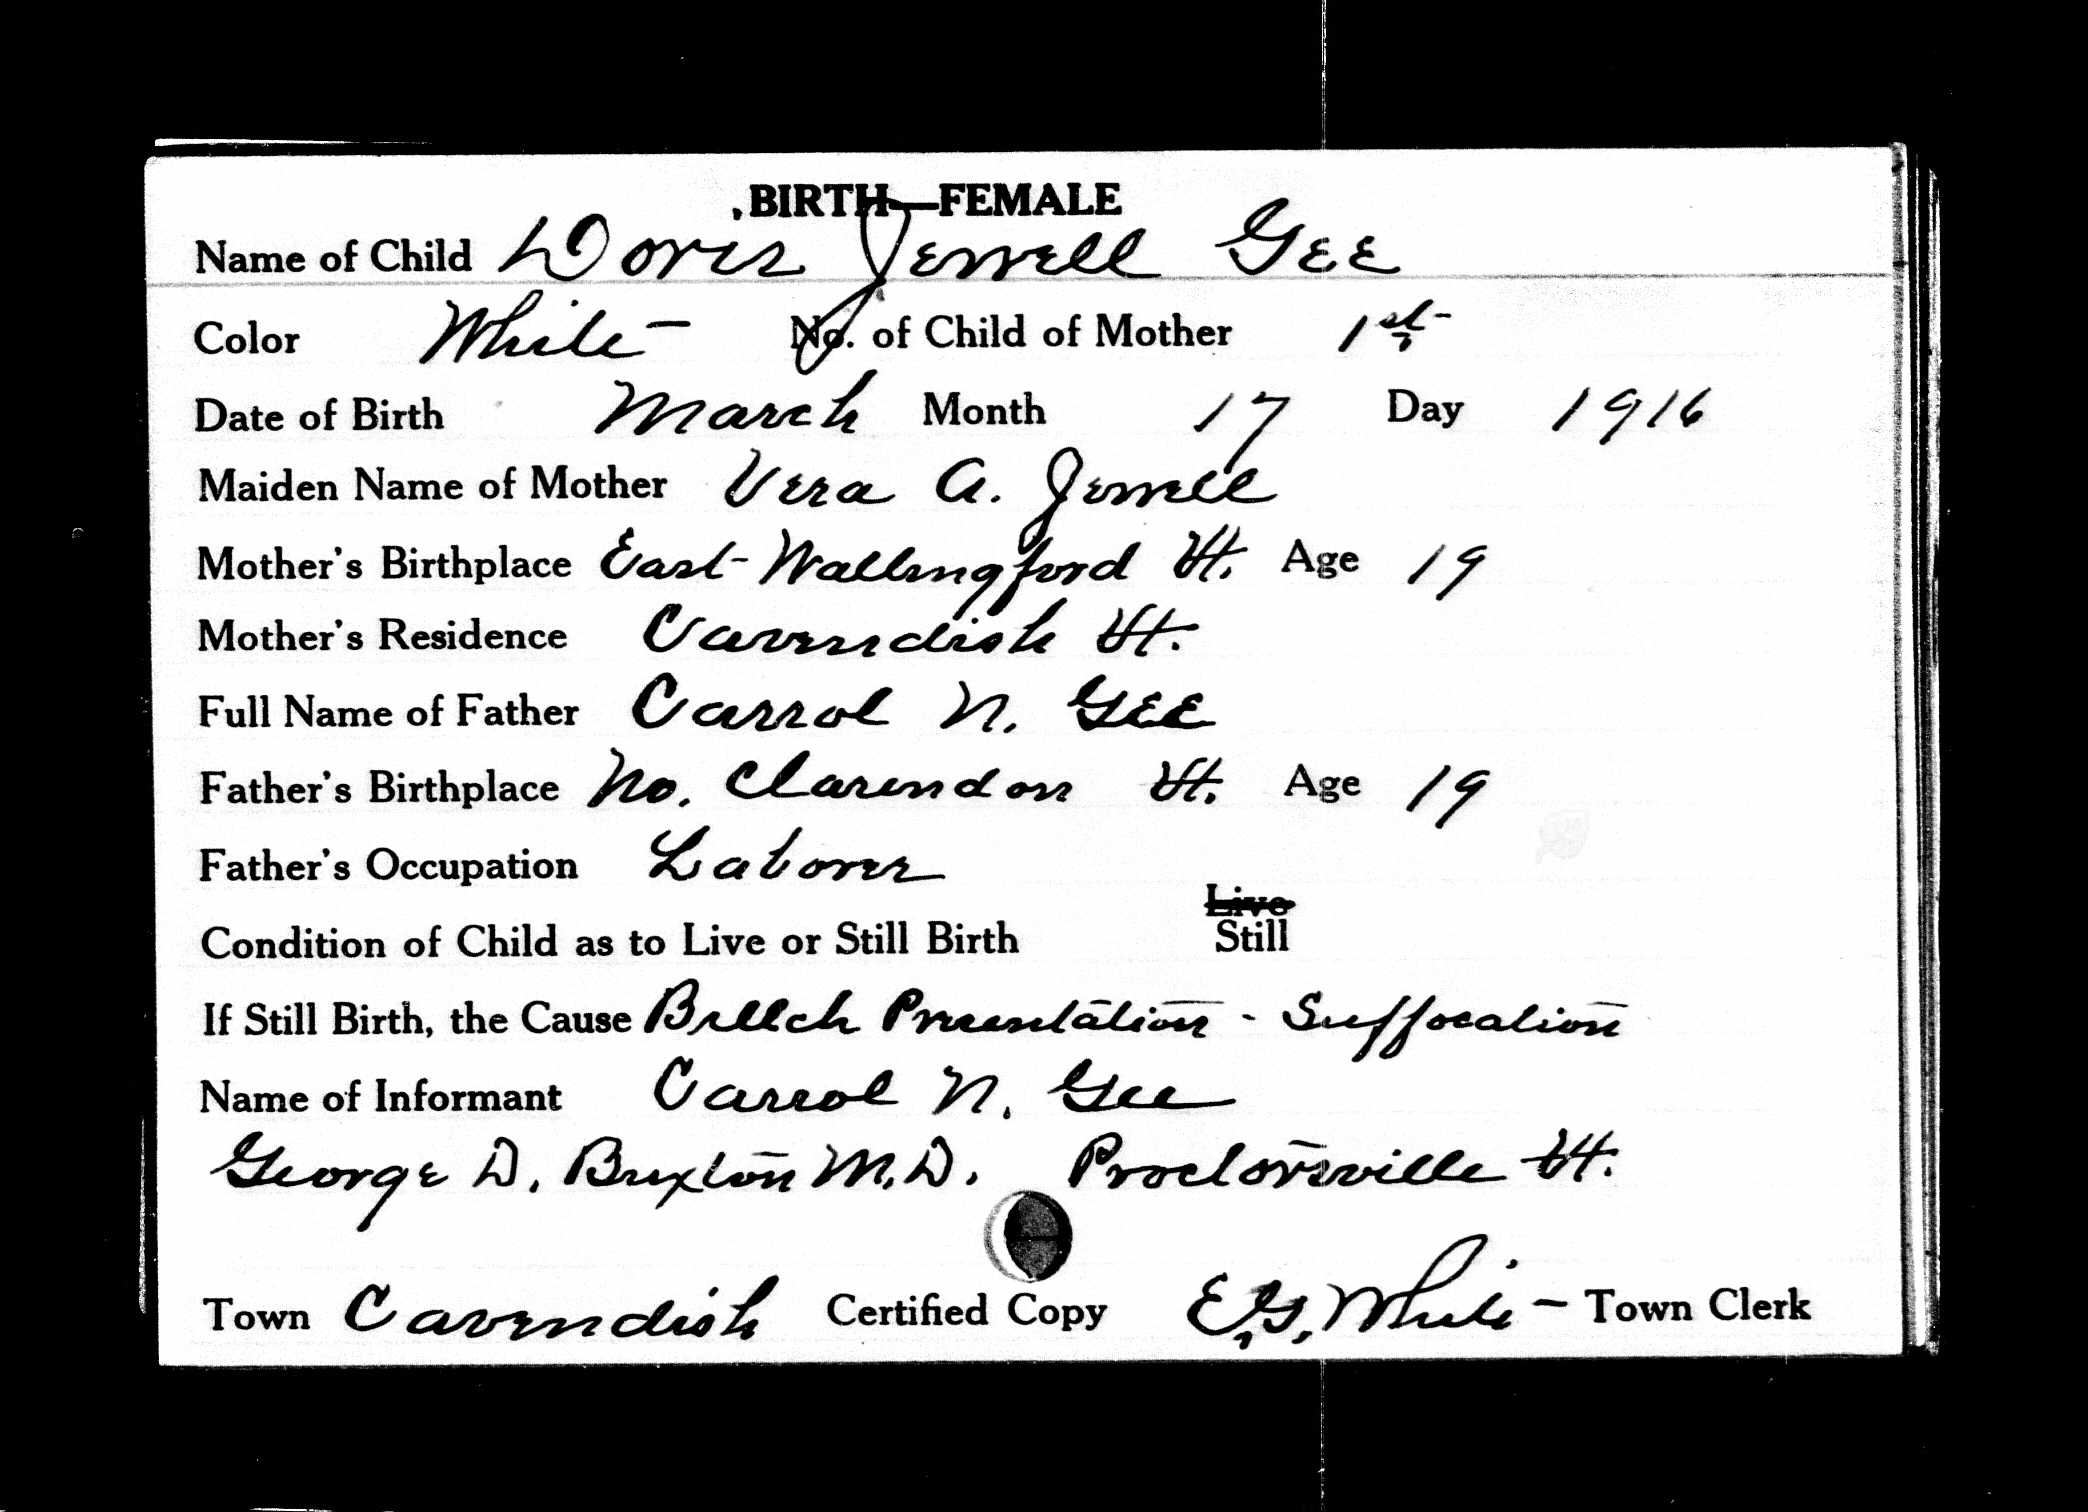 BIRTH—FEMALE
Name of Child Doris Jerrell Gee
Color White – No. of Child of Mother 1st
Date of Birth March Month 17 Day 1916
Maiden Name of Mother Vera A. Jerrell
Mother's Birthplace East Wallingford Vt. Age 19
Mother's Residence Cavendish Vt.
Full Name of Father Carrol N. Gee
Father's Birthplace No. Clarendon Vt. Age 19
Father's Occupation Laborer
Live
Condition of Child as to Live or Still Birth Still
If Still Birth, the Cause Breech Presentation - Suffocation
Name of Informant Carrol N. Gee
George D. Buxton M.D. Proctorsville Vt.
Town Cavendish Certified Copy E.G. White – Town Clerk